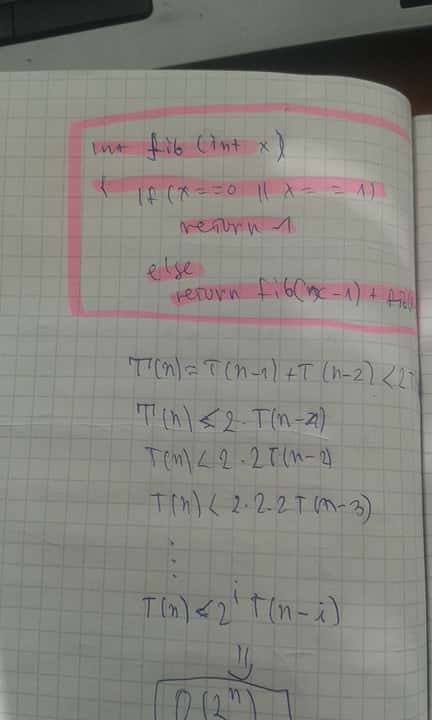 int fib (int x)
{ if (x==0 || x==1)
return 1
else
return fib(x-1) + fib(
T(n)=T(n-1)+T(n-2)<2T
T(n)<2·T(n-1)
T(n)<2·2T(n-2
T(n)<2·2·2T(n-3)
⋮
T(n)<2^i T(n-i)
⇓
O(2^n)